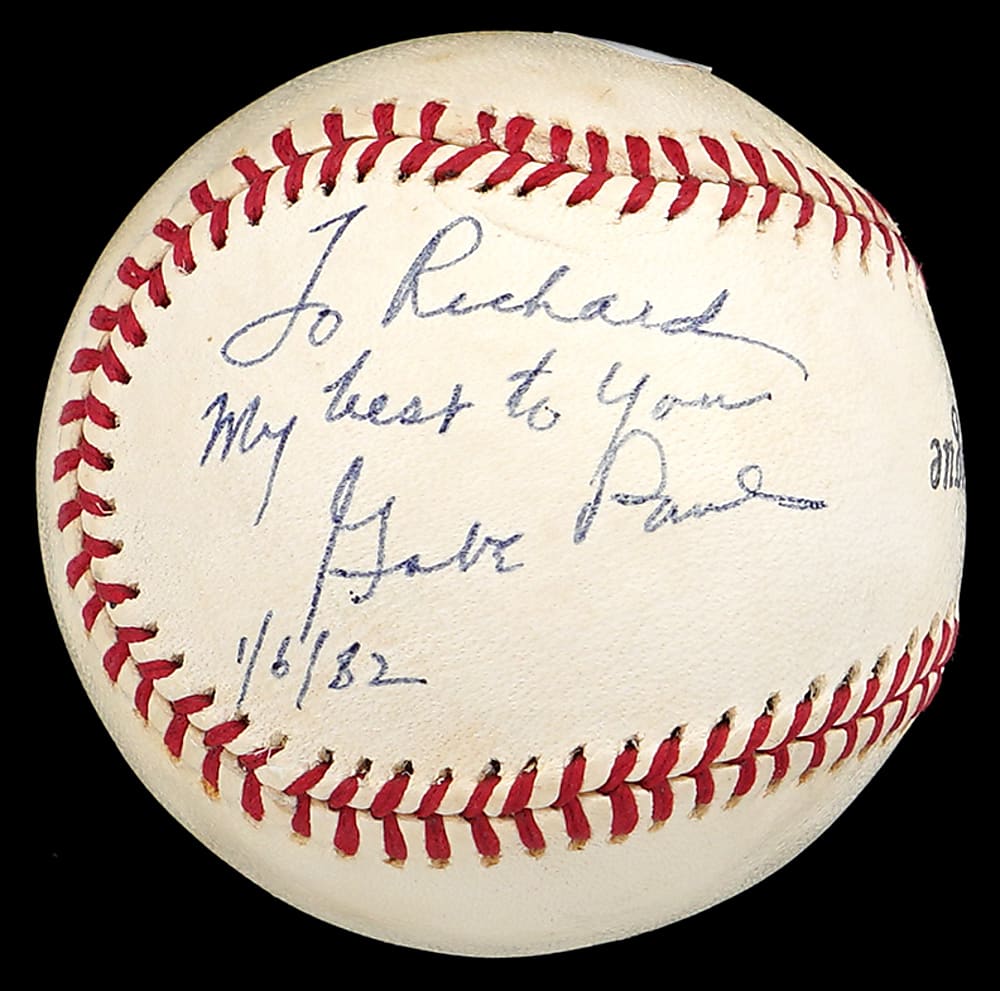 To Richard
My best to you
Gabe Paul
1/6/82